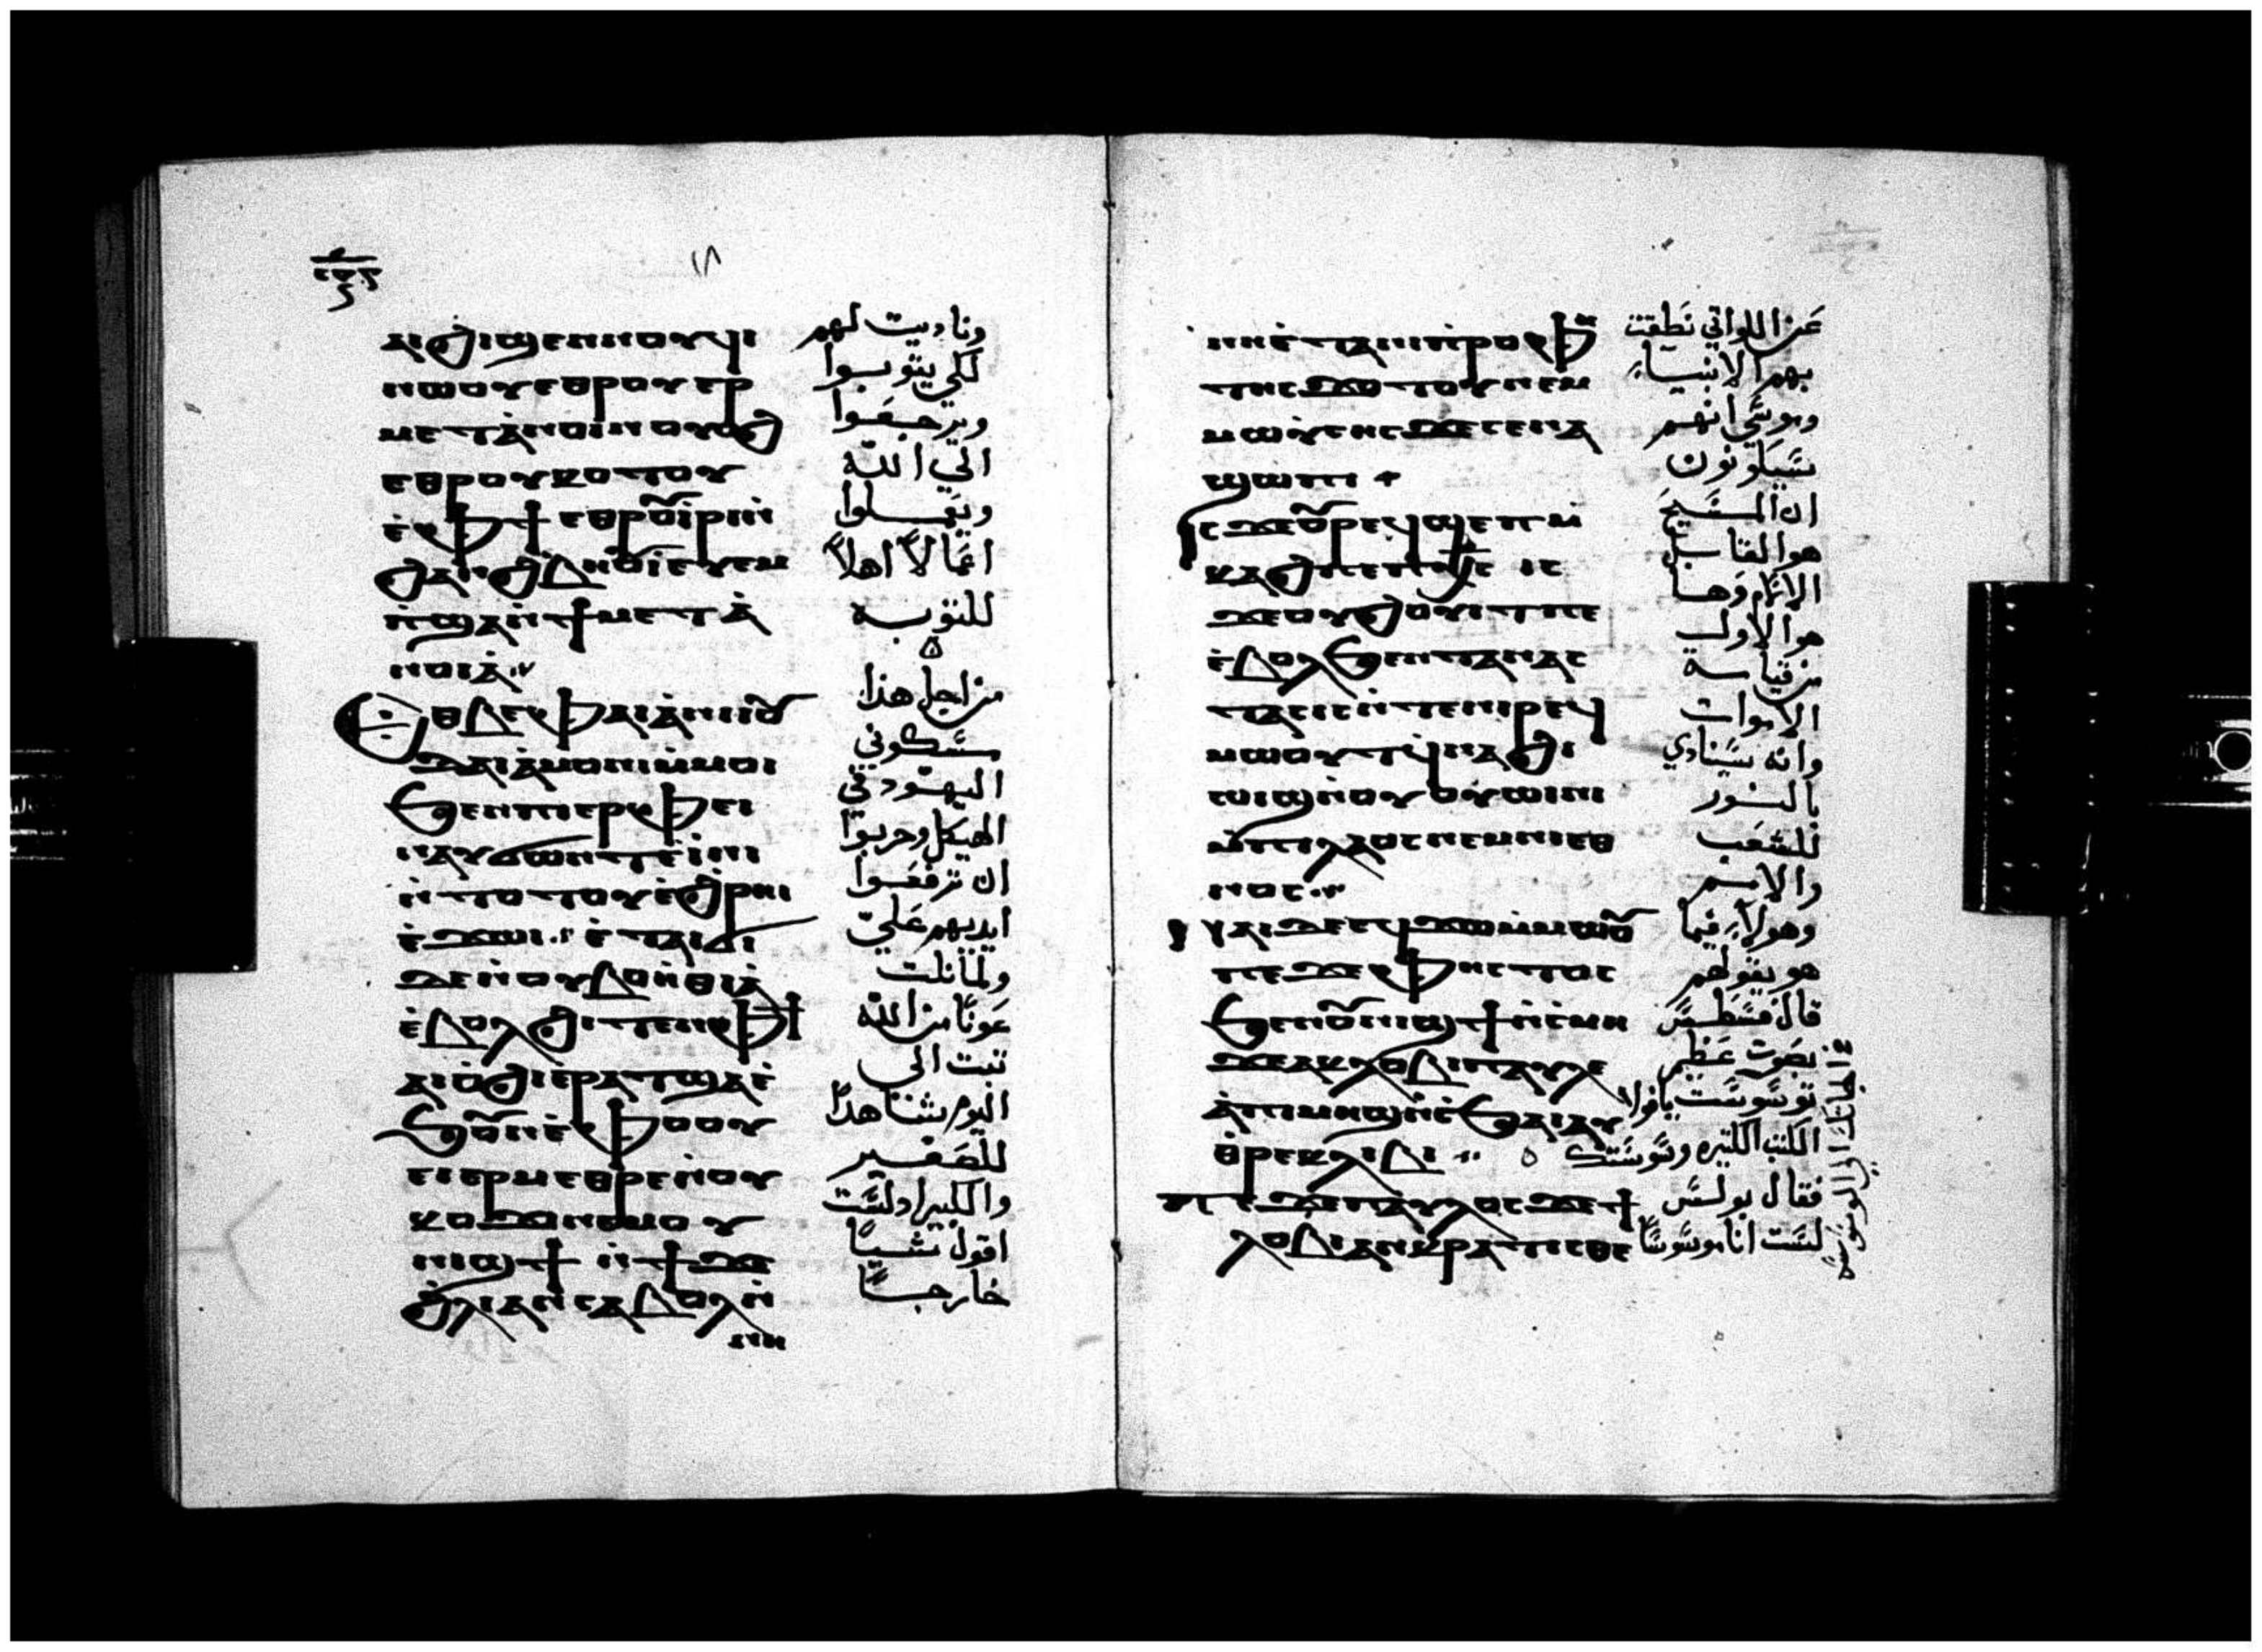 ١٨
ⲁⲓϩⲓⲱⲓϣⲉⲛⲛⲟⲩϥⲓ
ⲛⲱⲟⲩⲉⲑⲣⲟⲩⲉⲣ
ⲙⲉⲧⲁ̀ⲛⲟⲓⲛⲟⲩⲟϩ
ⲉⲑⲣⲟⲩⲕⲟⲧⲟⲩ
ⲉ̀ⲫϯ ⲉⲑⲣⲟⲩⲓ̀ⲣⲓⲛ̀
ϩⲁⲛϩⲃⲏⲟⲩⲓ ⲉⲩⲉⲙ
ⲡ̀ϣⲁⲛ̀ϯⲙⲉⲧⲁ̀
ⲛⲟⲓⲁ
ⲉⲑⲃⲉⲫⲁⲓⲁ̀ⲛⲓⲟⲩ
ⲇⲁⲓⲁ̀ⲙⲟⲛⲓⲙ̀ⲙⲟⲓ
ϧⲉⲛⲡⲓⲉⲣⲫⲉⲓ
ⲛⲁⲩϭⲱⲛⲧⲉ̀ⲓⲛⲓ
ⲛ̀ⲧⲟⲧⲟⲩⲉ̀ϩⲣⲏⲓ
ⲉ̀ϫⲱⲓ ⲉ̀ⲧⲁⲓϭⲓ
ⲇⲉⲛ̀ⲟⲩⲃⲟⲏ̀ⲑⲓⲁ
ⲉ̀ⲃⲟⲗϩⲓⲧⲉⲛⲫϯ
ⲁⲓⲟ̀ϩⲓⲉ̀ⲣⲁⲧϣⲁⲉ̀
ϧⲟⲩⲛⲉ̀ⲫⲟⲟⲩ
ⲉⲓⲉⲣⲙⲉⲑⲣⲉⲛ̀ⲟⲩ
ⲕⲟⲩϫⲓⲛⲉⲙⲟⲩ
ⲛⲓϣϯ ⲛ̀ϯϫⲉ
ϩ̀ⲗⲓⲁⲛⲥⲁⲃⲟⲗⲛ̀
ⲛⲏ
وناديت لهم
لكي يتوبوا
ويرجعوا
الي الله
ويعملوا
اعمالاً اهلاً
للتوبه
من اجل هذا
مسكوني
اليهود في
الهيكل وجربوا
ان ترفعوا
ايديهم علي
ولما نلت
عونًا من الله
ثبت الي
اليوم شاهدًا
للصغير
والكبير ولست
اقول شيًا
خارجًا
ⲛⲏⲉ̀ⲧⲁⲛⲓⲡⲣⲟⲫⲏ
ⲧⲏⲥϫⲟⲧⲟⲩⲛⲉⲙ
ⲙⲱⲩ̀ⲥⲏⲥϫⲉⲥⲉⲛⲁ
ϣⲱⲡⲓ
ⲓⲥϫⲉⲟⲩⲣⲉϥϣⲉⲡⲙ̀
ⲕⲁϩⲡⲉⲡⲭⲥ ⲓⲥ
ϫⲉⲟⲩϩⲟⲩⲓⲧⲡⲉ
ⲉ̀ⲃⲟⲗϧⲉⲛⲧⲁⲛⲁⲥ
ⲧⲁⲥⲓⲥⲛ̀ⲧⲉⲛⲓⲣⲉϥ
ⲙⲱⲟⲩⲧϥ̀ⲛⲁϩⲓ
ⲱⲓϣⲛ̀ⲟⲩⲟⲩⲱⲓⲛⲓ
ⲙ̀ⲡⲓⲗⲁⲟⲥⲛⲉⲙⲛⲓⲉⲑ
ⲛⲟⲥ
ⲛⲁⲓⲇⲉⲉϥϫⲱⲙ̀ⲙⲱⲟⲩ
ⲡⲉϫⲉⲫⲏⲥⲧⲟⲥ
ϧⲉⲛⲟⲩⲛⲓϣϯⲛ̀ⲥ̀ⲙⲏ
ϫⲉⲁⲕⲗⲟⲃⲓⲡⲁⲩⲗⲉ
ⲁ̀ⲡⲓⲙⲏϣⲛ̀ⲥ̀ϧⲁⲓⲁⲩ
ⲑⲣⲉⲕⲗⲓⲃⲓ
ⲡⲉϫⲉⲡⲁⲩⲗⲟⲥϫⲉϯ
ⲗⲟⲃⲓⲁⲛⲕⲣⲁⲧⲓⲥⲑⲉ
عن اللواتي نطقت
بهم الانبياء
وموسي انهم
سيكونون
ان المسيح
هو القابل
الالام وهذا
هو الاول
من قيامة
الاموات
وانه سينادي
بالنور
للشعب
والامم
وهولاء فيما
هو يقولهم
قال فسطس
بصوت عظيم
توسوست يا فولا
الكتب الكثيره وسوستك
فقال بولس
لست انا موسوسًا